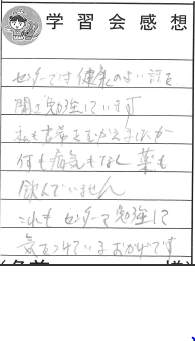 学習会感想
センターでは健康のよい話を
聞き勉強しています
私も古希をむかえましたが
何も病気もなく薬も
飲んでいません
これもセンターで勉強して
気をつけているおかげです